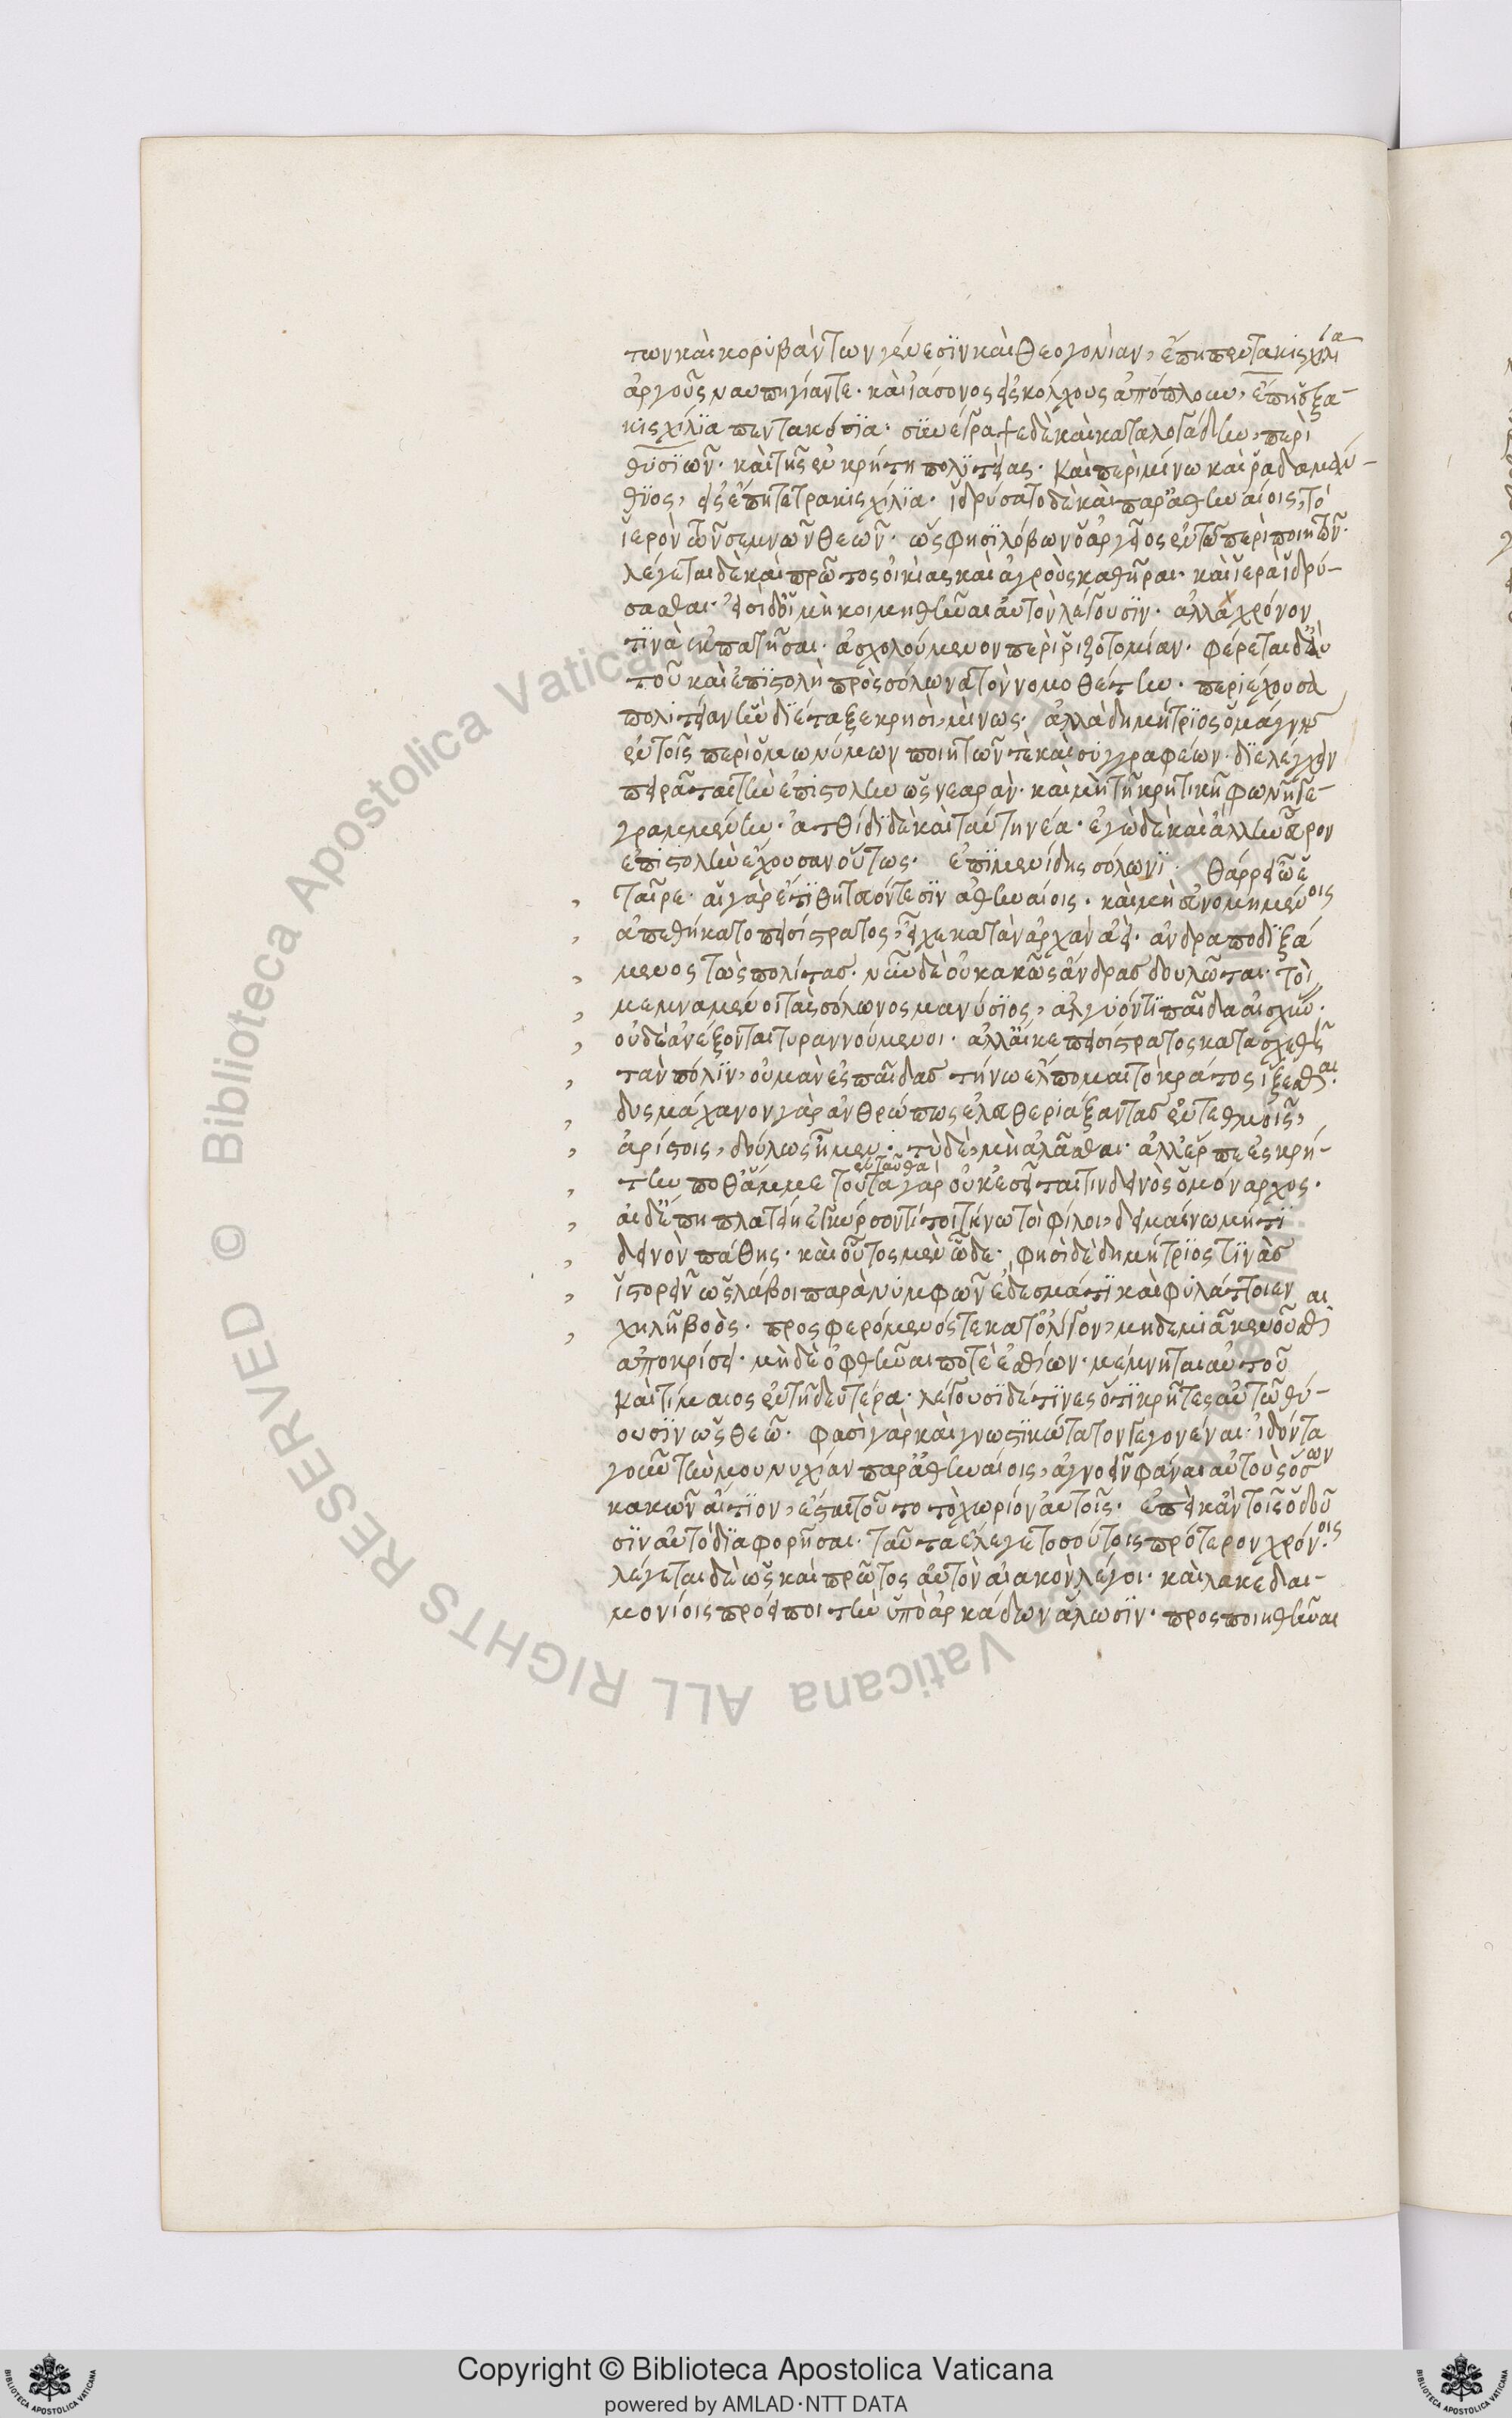 των καὶ κορυβάντων γένεσϊν καὶ θεογονίαν, ἔπη πεντακισχίλια
ἀργοῦς ναυπηγίαν τε. καὶ ἰάσονος εἰς κόλχους ἀπόπλουν, ἔπη ἑξα-
κισχίλϊα πεντακόσϊα. συνέγραψε δὲ καὶ καταλογάδην, περὶ
θυσϊῶν. καὶ τῆς ἐν κρήτη πολϊτείας. καὶ περὶ μίνω καὶ ῥαδαμάν-
θϋος, εἰς ἔπη τετρακισχίλϊα. ἱδρύσατο δὲ καὶ παρ' ἀθηναίοις, τὸ
ἱερὸν τῶν σεμνῶν θεῶν. ὥς φησϊ λόβων ὁ ἀργεῖος ἐν τῶ περὶ ποιητῶν.
λέγεται δὲ καὶ πρῶτος οἰκίας καὶ ἀγροὺς καθῆραι. καὶ ἱερὰ ἱδρύ-
σασθαι. εἰσὶ δ' οἳ μὴ κοιμηθῆναι αὐτὸν λέγουσϊν. ἀλλὰ χρόνον
τϊνὰ ἐκπατῆσαι. ἀσχολούμενον περὶ ῥιζοτομίαν. φέρεται δ' αὐ
τοῦ καὶ ἐπϊστολὴ πρὸς σόλωνα τὸν νομοθέτην. περιέχουσα
πολιτείαν ἣν δϊέταξε κρησὶ, μίνως. ἀλλὰ δημήτρϊος ὁ μάγνης
ἐν τοῖς περὶ ὁμωνύμων ποιητῶν τὲ καὶ συγγραφέων. δϊελέγχειν
πειρᾶται τὴν ἐπιστολὴν ὡς νεαρὰν. καὶ μὴ τῆ κρητικῆ φωνῆ γε-
γραμμένην. ἀτθίδϊ δὲ καὶ ταύτη νέα. ἐγὼ δὲ καὶ ἄλλην εὗρον
ἐπιστολὴν ἔχουσαν οὕτως. ἐπϊμενίδης σόλωνϊ. θάρρει ὦ ἑ
ταῖρε. αἰ γὰρ ἔτϊ θητευόντεσϊν ἀθηναίοις. καὶ μὴ εὐνομημένοις
ἀπεθήκατο πεισίστρατος, εἶχε κα τὰν ἀρχὰν ἀεὶ. ἀνδραποδϊξά
μενος τὼς πολίτας. νῦν δὲ οὐ κακῶς ἄνδρας δουλῶται. τοὶ
μεμναμένοι τᾶς σόλωνος μανύσϊος, ἀλγιόντϊ πεδὰ αἰσχύν.
οὐδὲ ἀνέξονται τυραννούμενοι. ἀλλ' αἴκε πεισίστρατος κατασχεθῆ
τὰν πόλϊν, οὐ μὰν ἐς παῖδας τήνω ἔλπομαι τὸ κράτος ἵξεσθαι.
δυσμάχανον γὰρ ἀνθρώπως ἐλευθεριάξαντας ἐν τεθμοῖς,
ἀρίστοις, δούλως ἦμεν. τὺ δὲ, μὴ ἀλᾶσθαι. ἀλλ' ἕρπε ἐς κρή-
την ποθ' ἅμμε τοῦτα ἐνταῦθα γὰρ οὐκ ἐσεῖται τϊν δεινὸς ὁ μόναρχος.
αἰ δέ πη πλατείη ἐγκύρσοντί τοι τήνω τοὶ φίλοι, δειμαίνω μή τϊ
δεινὸν πάθης. καὶ οὗτος μὲν ὧδε. φησὶ δὲ δημήτρϊος τϊνὰς
ἱστορεῖν ὡς λάβοι παρὰ νυμφῶν ἔδεσμά τϊ καὶ φυλάττοι ἐν
χηλῆ βοός. προσφερόμενός τε κατ' ὀλίγον, μηδεμιᾶ κενοῦσθαι
ἀποκρίσει. μηδὲ ὀφθῆναι ποτὲ ἐσθίων. μέμνηται αὐτοῦ
καὶ τίμαιος ἐν τῆ δευτέρα. λέγουσϊ δέ τϊνες ὅτϊ κρῆτες αὐτῶ θύ-
ουσϊν ὡς θεῶ. φασὶ γὰρ καὶ γνωστϊκώτατον γεγονέναι. ἰδόντα
γοῦν τὴν μουνυχίαν παρ' ἀθηναίοις, ἀγνοεῖν φάναι αὐτοὺς ὅσων
κακῶν αἴτϊον, ἔσται τοῦτο τὸ χωρίον αὐτοῖς. ἐπεὶ κἂν τοῖς ὀδοῦ
σϊν αὐτὸ δϊαφορῆσαι. ταῦτα ἔλεγε τοσούτοις πρότερον χρόνοις
λέγεται δὲ ὡς καὶ πρῶτος αὐτὸν αἰακὸν λέγοι. καὶ λακεδαι-
μονίοις προείποι τὴν ὑπὸ ἀρκάδων ἅλωσϊν. προσποιηθῆναι
Copyright © Biblioteca Apostolica Vaticana
powered by AMLAD·NTT DATA
© Biblioteca Apostolica Vaticana ALL RIGHTS RESERVED